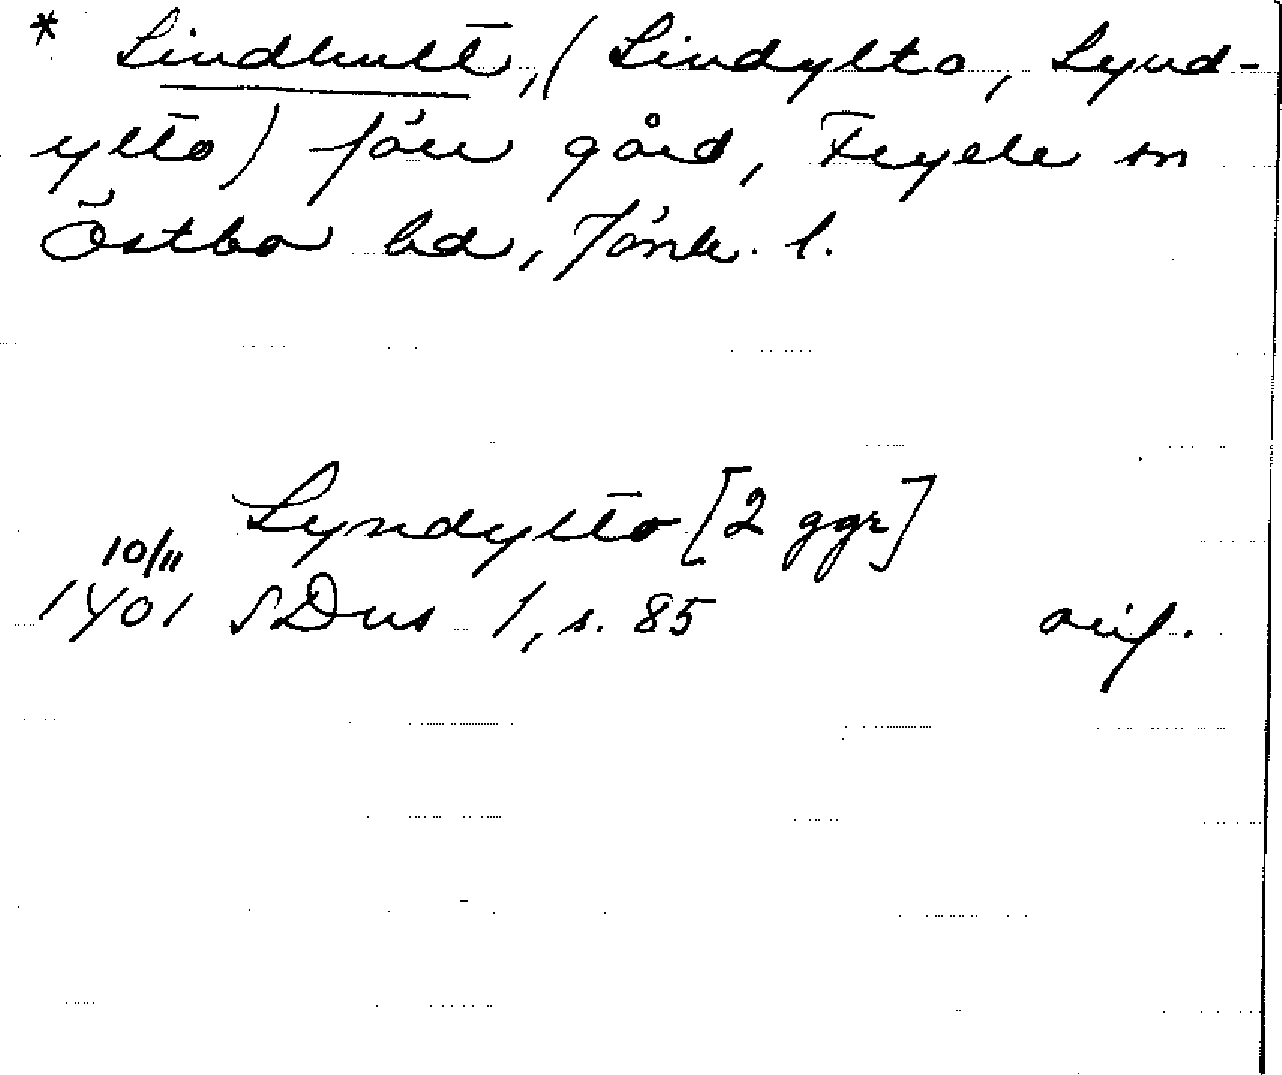 * Lindhult, (Lindylto, Lynd-
ylto) förr gård, Fryele sn
Östbo hd, Jönk. l.
Lyndylto [2 ggr]
10/11
1401 SDns 1, s. 85 orig.